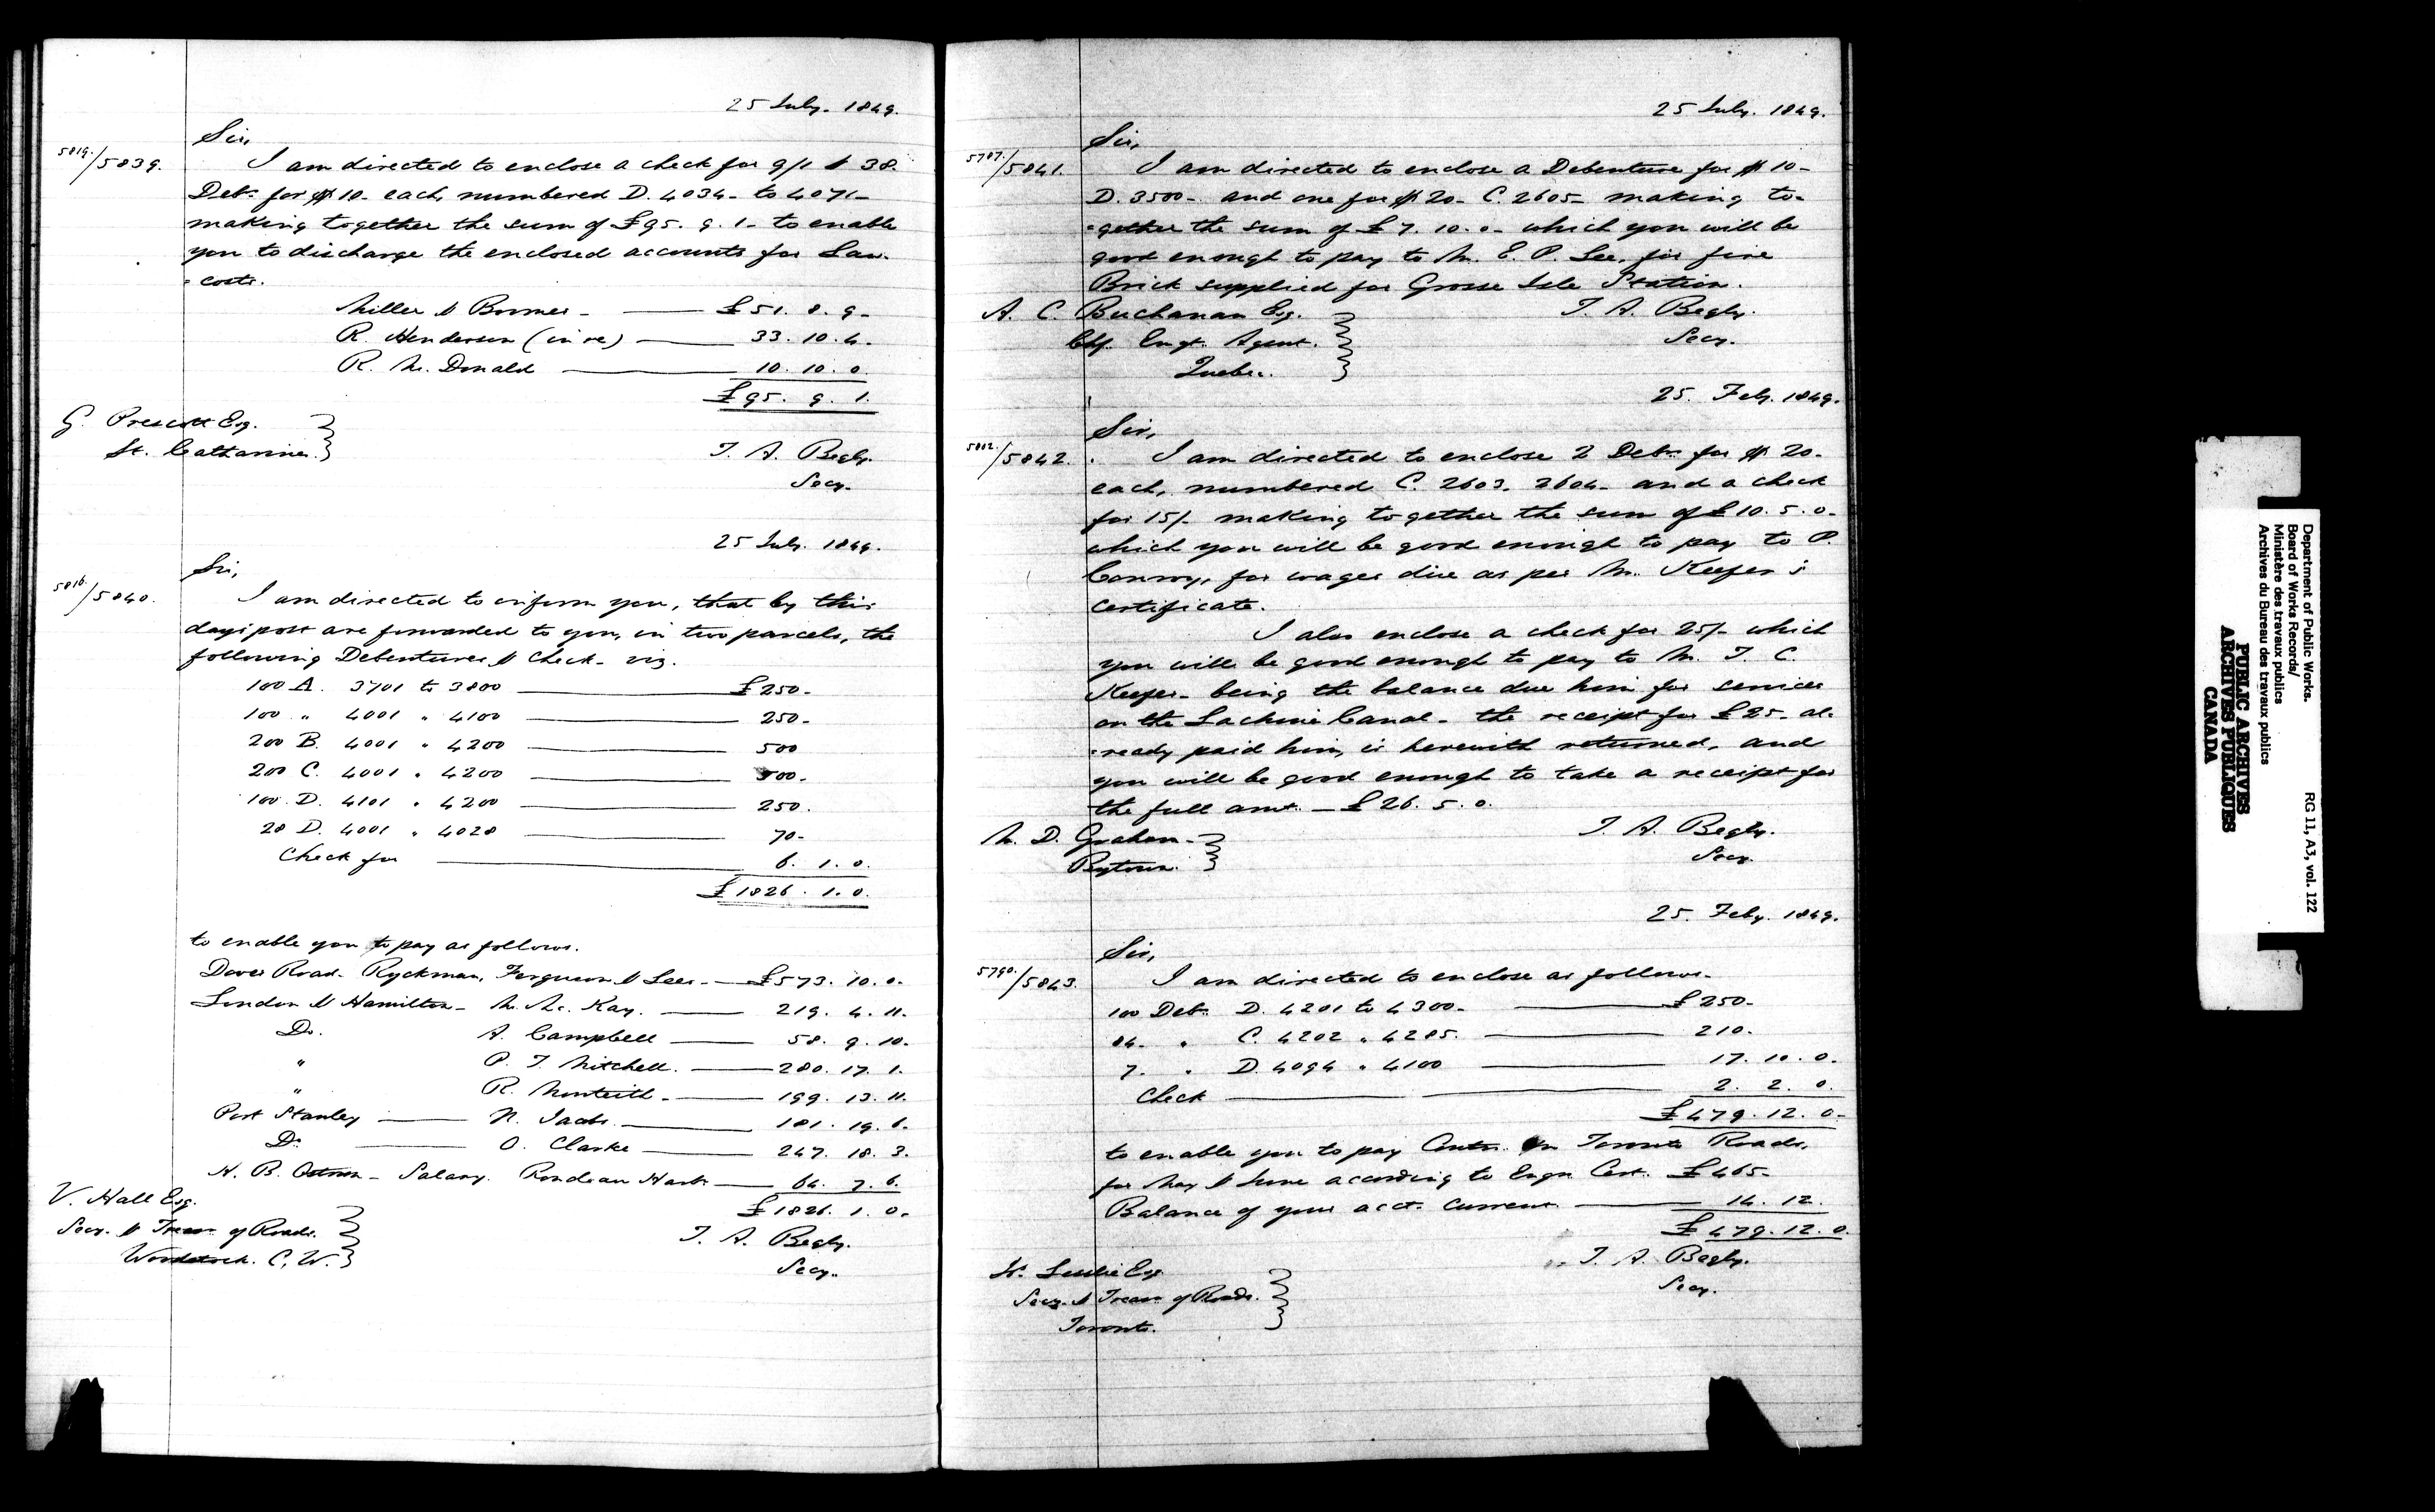 25 July. 1849.
Sir,
5819./5839. I am directed to enclose a check for 9/1 & 38.
Debs. for $10. each, numbered D. 4034- to 4071-
making together the sum of £95. 9. 1- to enable
you to discharge the enclosed accounts for Law.
-costs.
Miller & Boomer - £51. 8. 9-
R. Henderson (in re) 33. 10. 4.
R. Mc. Donald 10. 10. 0.
£95. 9. 1.
G. Prescott Esq.
St. Catharines.
T. A. Begly.
Secy.
25 July. 1849.
Sir,
5816./5840. I am directed to inform you, that by this
days post are forwarded to you, in two parcels, the
following Debentures & Check- viz.
100 A. 3701 to 3800 £250-
100 " 4001 " 4100 250-
200 B. 4001 " 4200 500
200 C. 4001 " 4200 500-
100. D. 4101 " 4200 250.
28 D. 4001 " 4028 70-
Check for 6. 1. 0.
£1826. 1. 0.
to enable you to pay as follows.
Dover Road- Ryckman, Ferguson & Lees- £573. 10. 0-
London & Hamilton- M. Mc. Kay. 219. 4. 11.
Do. A. Campbell 58. 9. 10-
" P. T. Mitchell. 280. 17. 1.
" R. Monteith- 199. 13. 11.
Port Stanley N. Jacobs. 181. 19. 6.
Do. O. Clarke 247. 18. 3.
H. B. - Salary. Rondeau Harbr 64. 7. 6.
£1826. 1. 0-
V. Hall Esq.
Secy. & Treasr of Roads.
Woodstock. C. W.
T. A. Begly.
Secy.
25 July. 1849.
Sir,
5787./5841. I am directed to enclose a Debenture for $10-
D. 3500- and one for $20- C. 2605- making to-
-gether the sum of £7. 10. 0- which you will be
good enough to pay to Mr. E. P. Lee, for fire
Brick supplied for Grosse Isle Station.
A. C. Buchanan Esq.
Chf. Emgt. Agent.
Quebec.
T. A. Begly.
Secy.
25. Feby. 1849.
Sir,
5812./5842. I am directed to enclose 2 Debs. for $20-
each, numbered C. 2603. 2604- and a check
for 15/- making together the sum of £10. 5. 0-
which you will be good enough to pay to P.
Conroy, for wages due as per Mr. Keefer's
certificate.
I also enclose a check for 25/- which
you will be good enough to pay to Mr. T. C.
Keefer- being the balance due him for services
on the Lachine Canal- the receipt for £25- al-
-ready paid him, is herewith returned, and
you will be good enough to take a receipt for
the full amt. - £26. 5. 0.
Mr. D. Graham-
Bytown.
T. A. Begly.
Secy.
25. Feby. 1849.
Sir,
5790./5843. I am directed to enclose as follows-
100 Debs. D. 4201 to 4300- £250-
84. " C. 4202 " 4285. 210.
7. " D. 4094 " 4100 17. 10. 0.
Check 2. 2. 0.
£479. 12. 0-
to enable you to pay Contrs. on Toronto Roads,
for May & June according to Engrs Cert. £465-
Balance of your acct. current 14. 12.
£479. 12. 0.
T. A. Begly.
Secy.
W. Leslie Esq
Secy. & Treasr of Roads.
Toronto.
Department of Public Works.
Board of Works Records/
Ministère des travaux publics
Archives du Bureau des travaux publics
RG 11, A3, vol. 122
PUBLIC ARCHIVES
ARCHIVES PUBLIQUES
CANADA